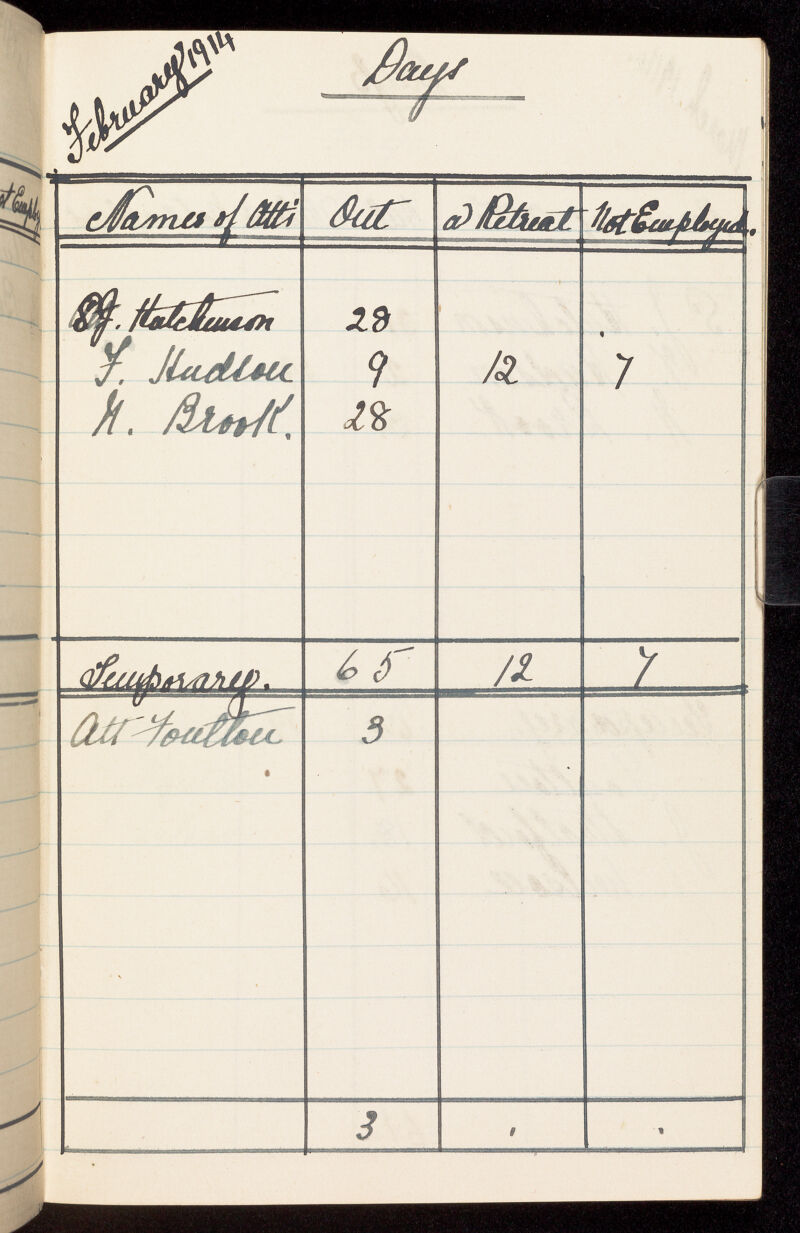 February 1914
Days
Names of Atts Out @ Retreat Not Employed.
S J. Hutchinson 28
F. Hudson 9 12 7
N. Brook. 28
65 12 7
Temporarey.
Att Foulton 3
3